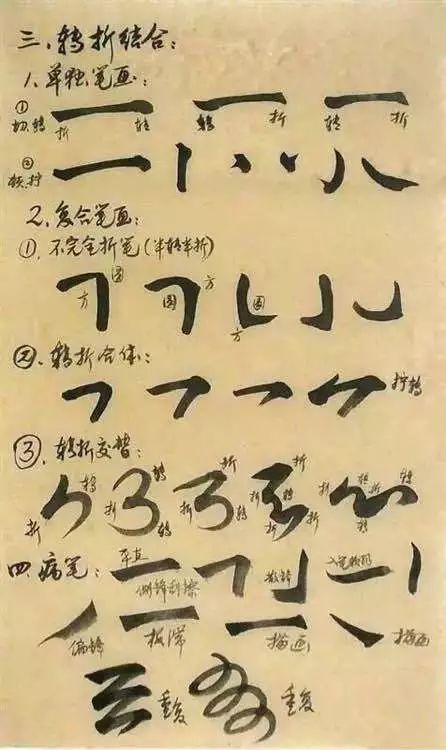 三、转折结合：
1.单独笔画：
① 切、转 折 转 转 折 转 折
② 顿、拧
2.复合笔画：
①.不完全折笔(半转半折)
方 圆 圆 方 圆 方
②.转折合体：
拧转
③.转折交替：
折 转 折 转 转 折 折 转 折 转 折 折 转 折 转 转
四 病笔： 平直 侧锋刮擦 散锋
偏锋 板滞 描画 描画
重复 重复